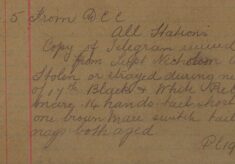 5 From D C C
All Stations
Copy of Telegram received
from Supt Nicholson
Stolen or strayed during n
of 17th Black & White
14 hands tail short
one brown mare switch tail
nags both aged